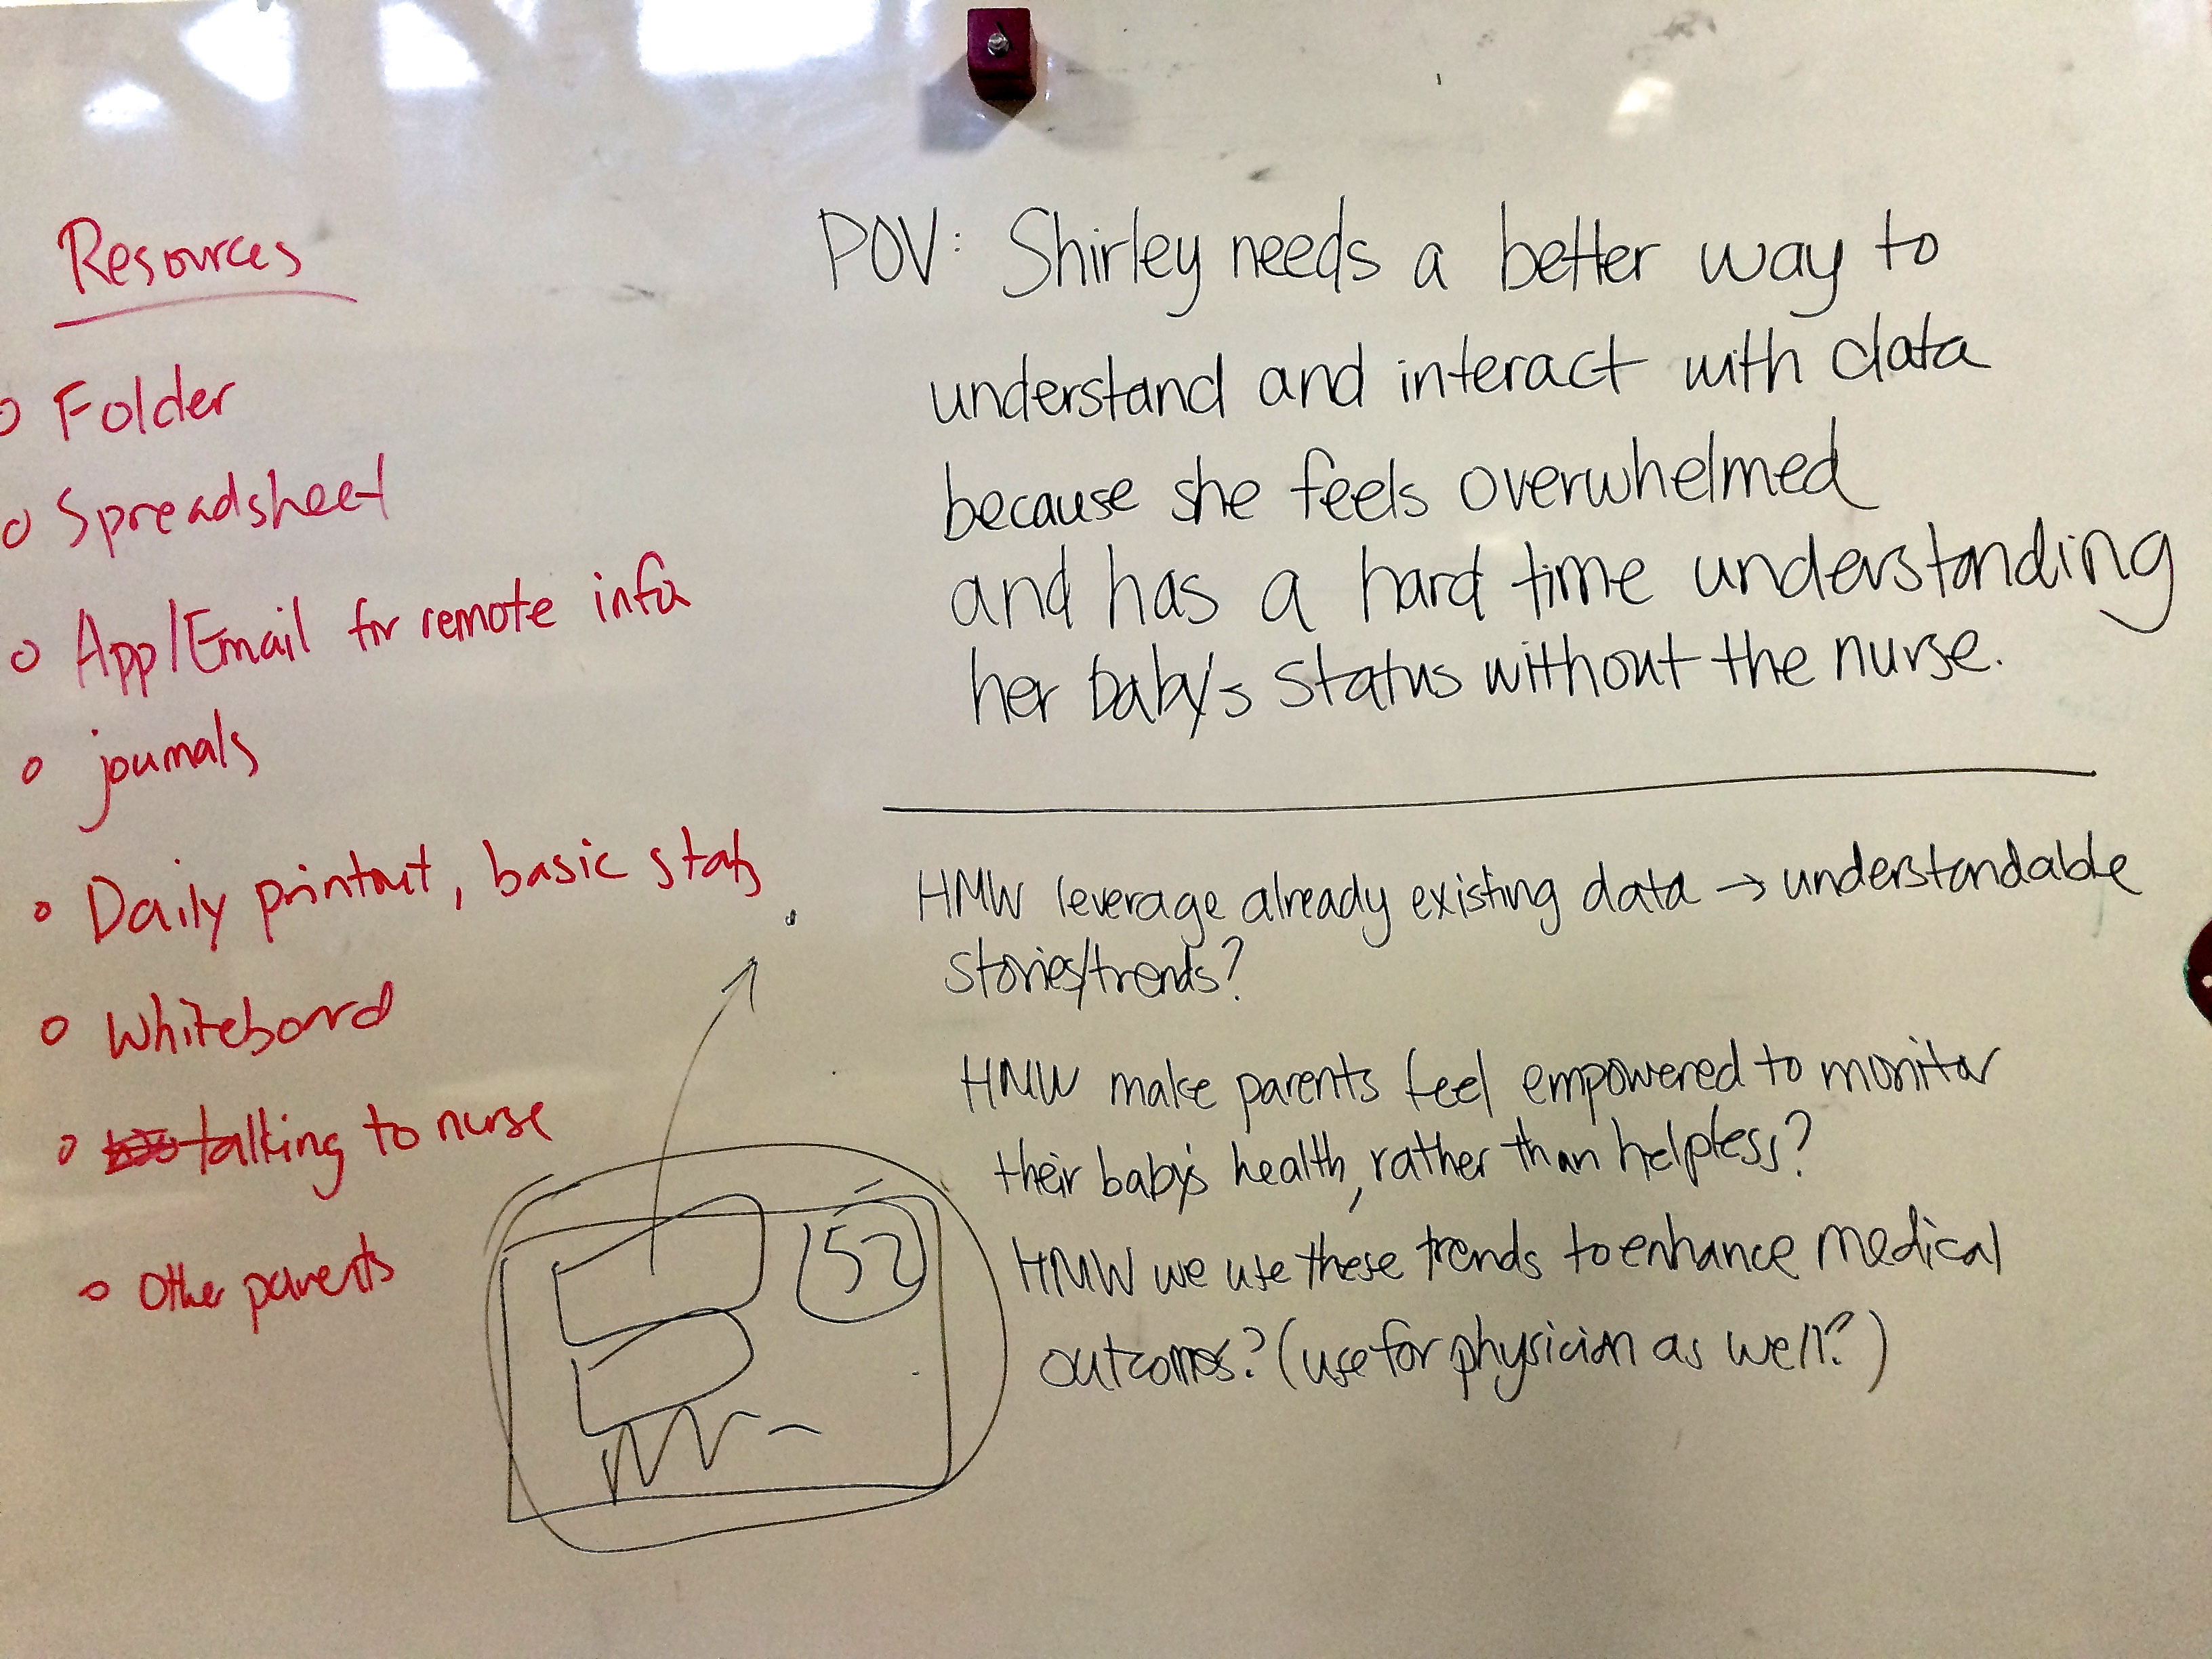 Resources
Folder
Spreadsheet
App/Email for remote info
journals
Daily printout, basic stats
Whiteboard
talking to nurse
Other parents
POV: Shirley needs a better way to
understand and interact with data
because she feels overwhelmed
and has a hard time understanding
her baby's status without the nurse.
HMW leverage already existing data → understandable
stories/trends?
HMW make parents feel empowered to monitor
their baby's health, rather than helpless?
HMW we use these trends to enhance medical
outcomes? (use for physician as well?)
152